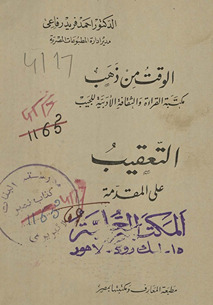 الدكتور احمد فريد رفاعى
مدير ادارة المطبوعات المصرية
الوقت من ذهب
مكتبة القراءة والثقافة الأدبية للجيب
التعقيب
على المقدمة
المكتبة العلمية
١٥ - ليك روڈ - لاهور
مطبعة المعارف ومكتبتها بمصر